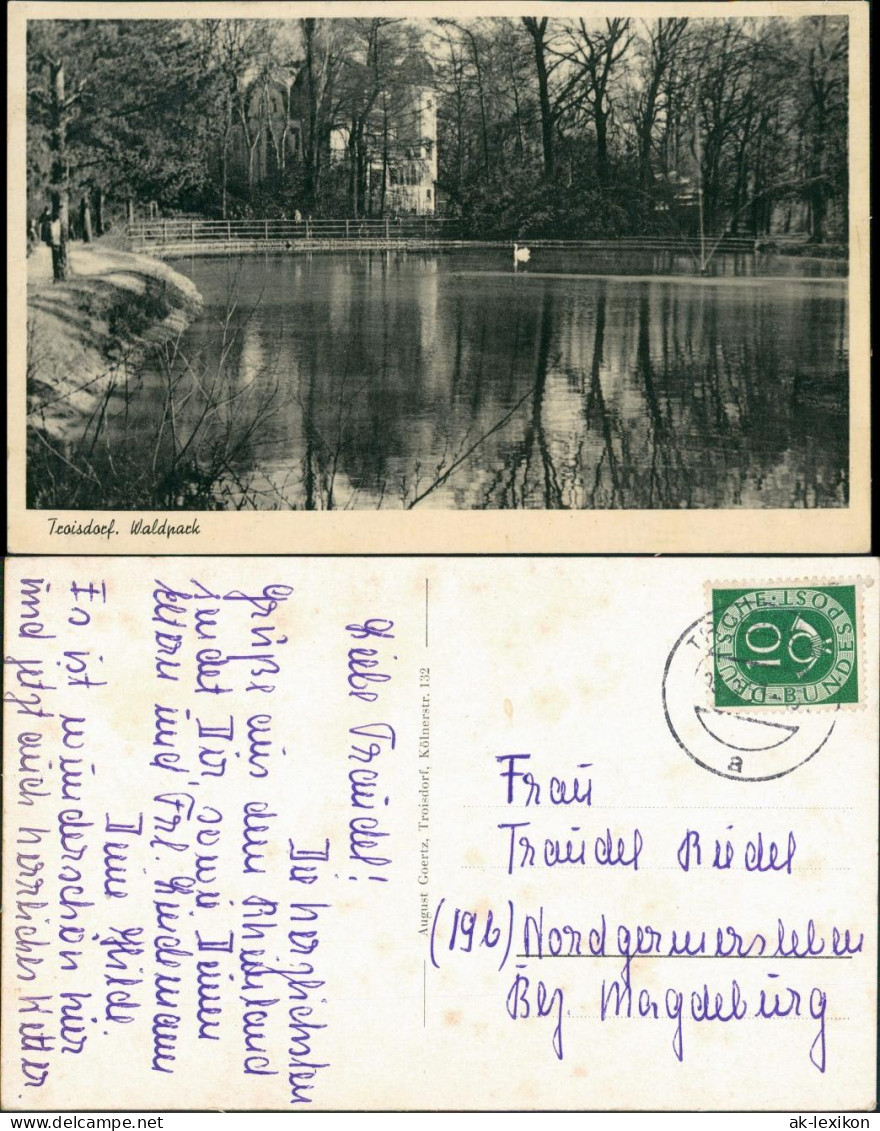 Troisdorf. Waldpark
Liebe Traudel!
Die herzlichsten
Grüße aus dem Rheinland
sendet Dir, sowie Deinen
Eltern und Frl. Lindemann
Deine Hilde.
Es ist wunderschön hier
und jetzt auch herrliches Wetter.
August Goertz, Troisdorf, Kölnerstr. 132
DEUTSCHE·POST
10
BUNDES
a
Frau
Traudel Riedel
(19b) Nordgermersleben
Bez. Magdeburg
ak-lexikon